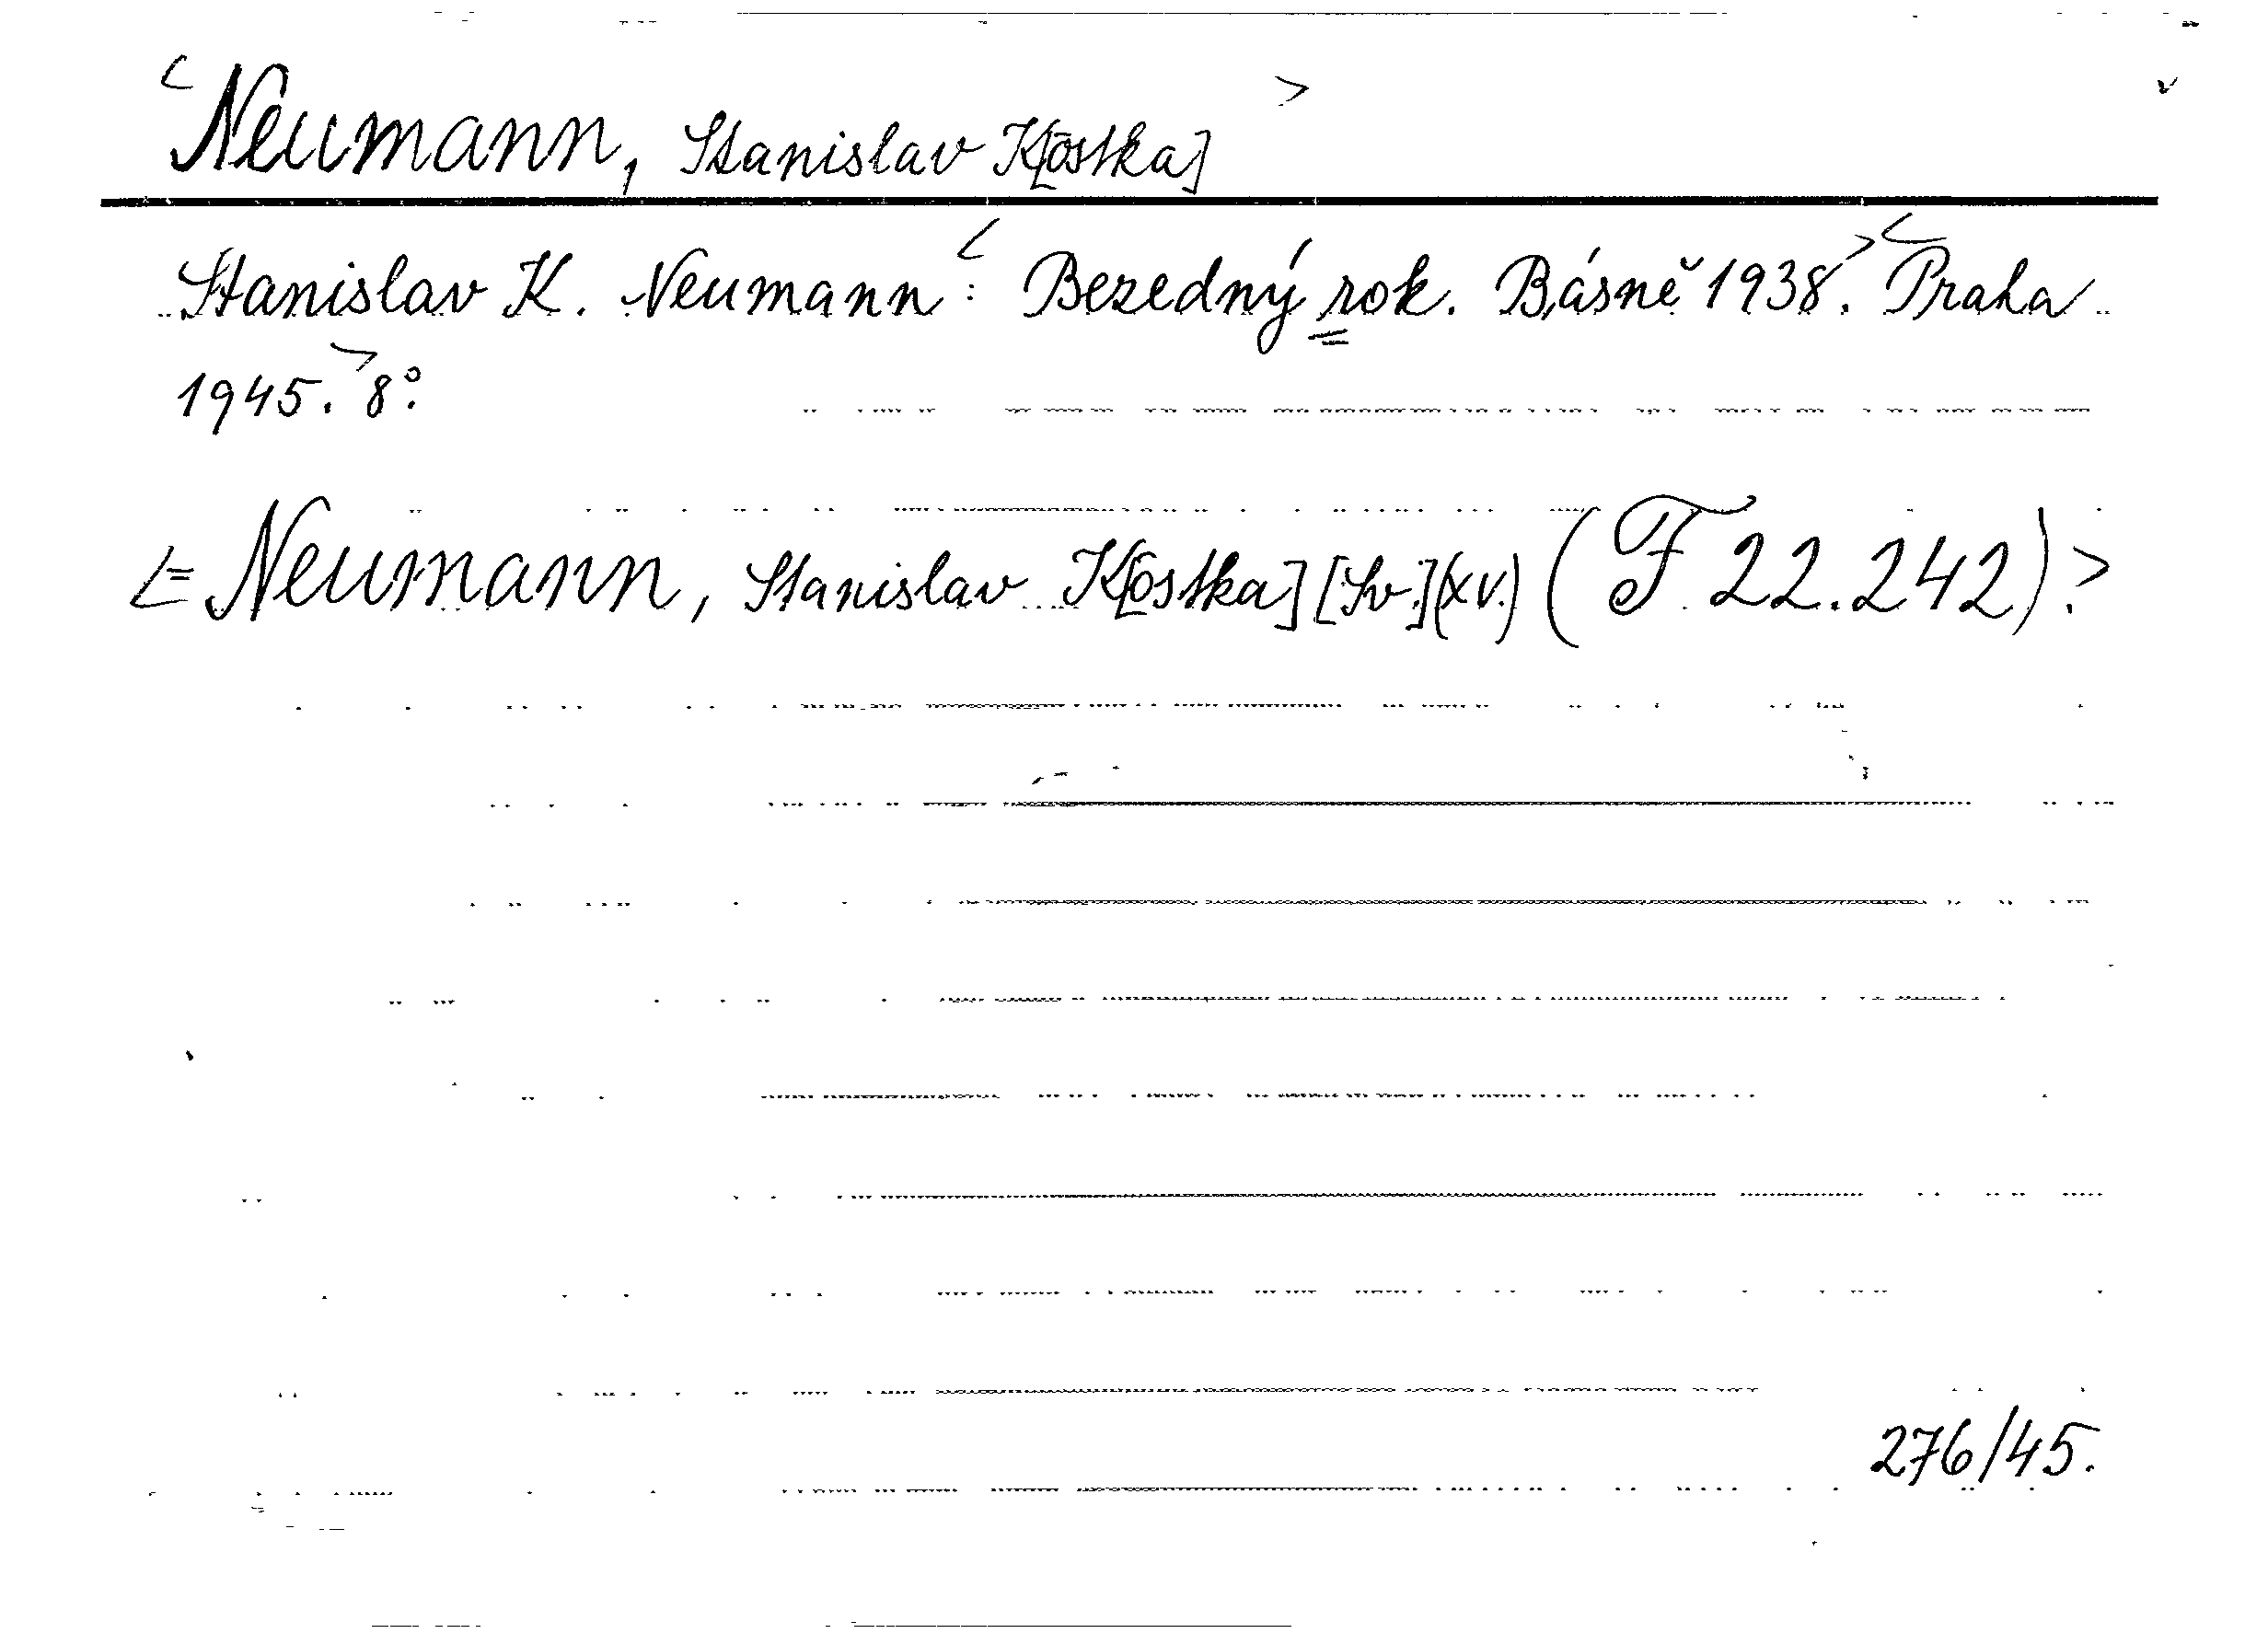 <Neumann, Stanislav K[ostka]>
Stanislav K. Neumann: <Bezedný rok. Básně 1938.> <Praha
1945.> 8°.
<= Neumann, Stanislav K[ostka] [Sv.] (XV.) (F 22.242).>
276/45.